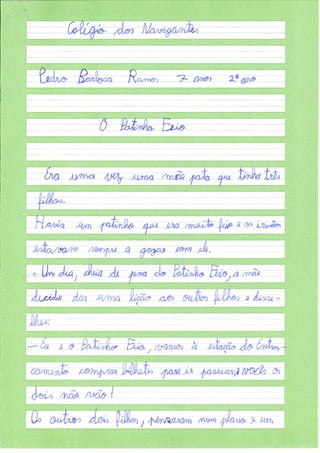 Colégio dos Navegantes
Pedro Barbosa Ramos 7 anos 2º ano
O Patinho Feio
Era uma vez uma mãe pata que tinha três
filhos.
Havia um patinho que era muito feio e os irmãos
estavam sempre a gozar com ele.
Um dia, cheia de pena do Patinho Feio, a mãe
decide dar uma lição aos outros filhos e disse-
lhes:
- Eu e o Patinho Feio, vamos à estação do Entron-
camento comprar bilhetes para ir passear, e vocês os
dois não vão!
Os outros dois filhos, pensaram num plano e um